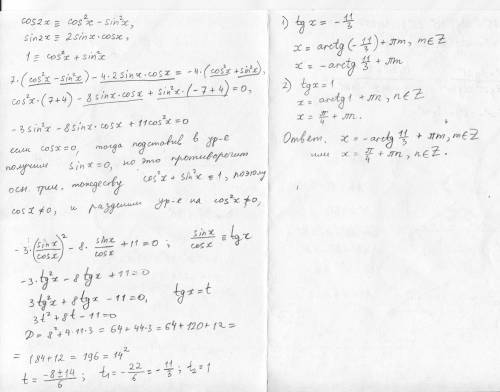 cos2x ≡ cos²x - sin²x,
sin2x ≡ 2sinx·cosx,
1 ≡ cos²x + sin²x
7·(cos²x - sin²x) - 4·2sinx·cosx = -4·(cos²x + sin²x),
cos²x·(7+4) - 8sinx·cosx + sin²x·(-7+4) = 0,
-3sin²x - 8sinx·cosx + 11cos²x = 0
если cosx = 0, тогда подставив в ур-е
получим sinx = 0, но это противоречит
осн. триг. тождеству cos²x + sin²x ≡ 1, поэтому
cosx ≠ 0, и разделим ур-е на cos²x ≠ 0,
-3·(sinx/cosx)² - 8·sinx/cosx + 11 = 0; sinx/cosx ≡ tgx
-3·tg²x - 8tgx + 11 = 0
3tg²x + 8tgx - 11 = 0, tgx = t
3t² + 8t - 11 = 0
D = 8² + 4·11·3 = 64 + 44·3 = 64 + 120 + 12 =
= 184 + 12 = 196 = 14²
t = (-8±14)/6; t₁ = -22/6 = -11/3; t₂ = 1
1) tgx = -11/3
x = arctg(-11/3) + πm, m∈Z
x = -arctg 11/3 + πm
2) tgx = 1
x = arctg1 + πn, n∈Z
x = π/4 + πn.
Ответ. x = -arctg 11/3 + πm, m∈Z
или x = π/4 + πn, n∈Z.